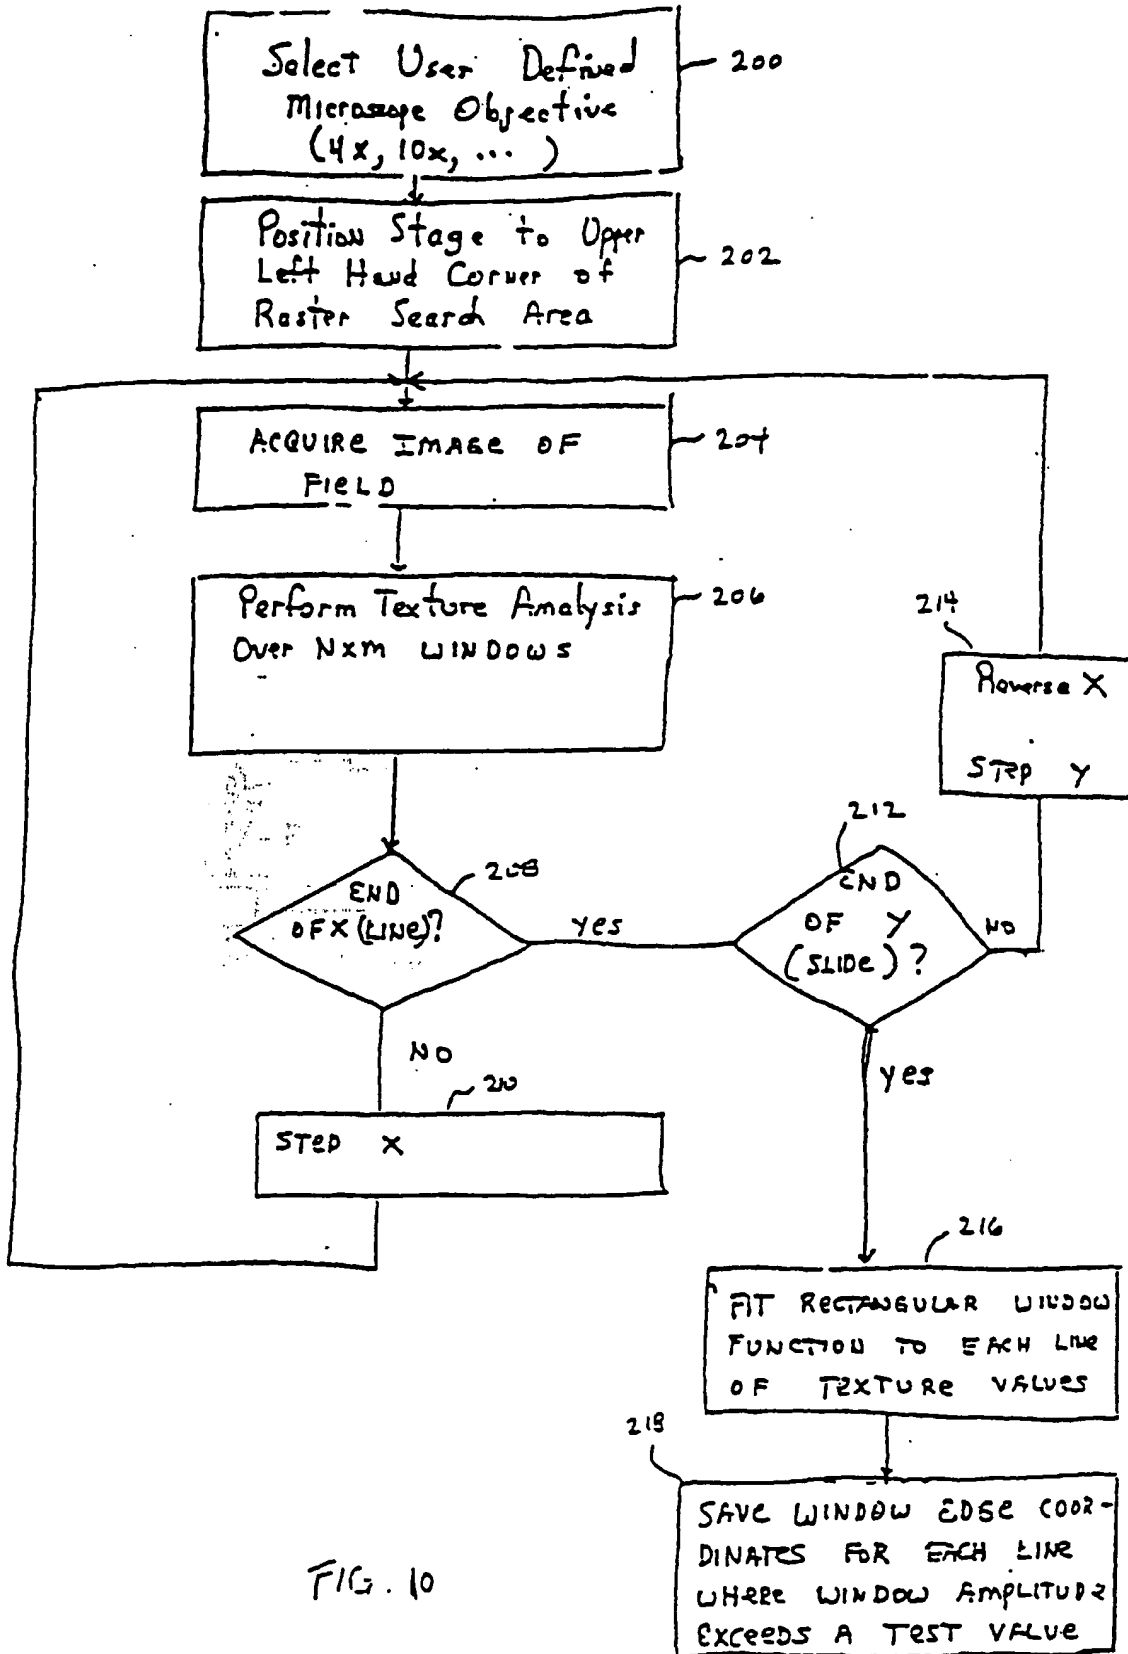 Select User Defined
Microscope Objective
(4x, 10x, ... )
200
Position Stage to Upper
Left Hand Corner of
Raster Search Area
202
ACQUIRE IMAGE OF
FIELD
204
Perform Texture Analysis
Over NxM WINDOWS
206
214
Reverse X
STEP Y
208
END
OF X (LINE)?
yes
212
END
OF Y
(SLIDE)?
NO
NO
yes
210
STEP X
216
FIT RECTANGULAR WINDOW
FUNCTION TO EACH LINE
OF TEXTURE VALUES
218
SAVE WINDOW EDGE COOR-
DINATES FOR EACH LINE
WHERE WINDOW AMPLITUDE
EXCEEDS A TEST VALUE
FIG. 10